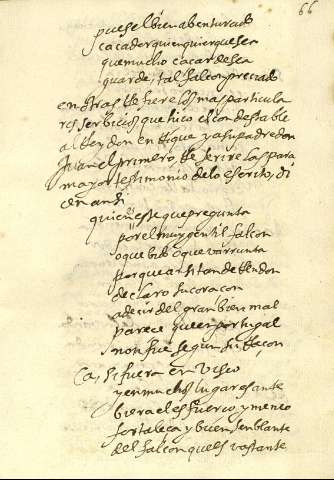 66
pues el bien abenturado
caçador quien quier que sea
que mucho caçar desea
guarde tal falcon preciado
en otras referire los mas particula
res serbiçios que hiço el condestable
al Rey don enrrique y a su padre don
Juan el primero, Referire las para
mayor testimonio de lo escrito, di
cen ansi
quien es este que pregunta
por el muy gentil falcon
o que bido o que varrunta
porque assi tan de rendon
declaro su coraçon
a deçir del gran bien mal
pareçe que en portugal
non fue segun su raçon
Ca, si fuera en viseo
y en muchos lugares ante
biera el esfuerço y meneo
fortaleça y buen senblante
del falcon ques vastante